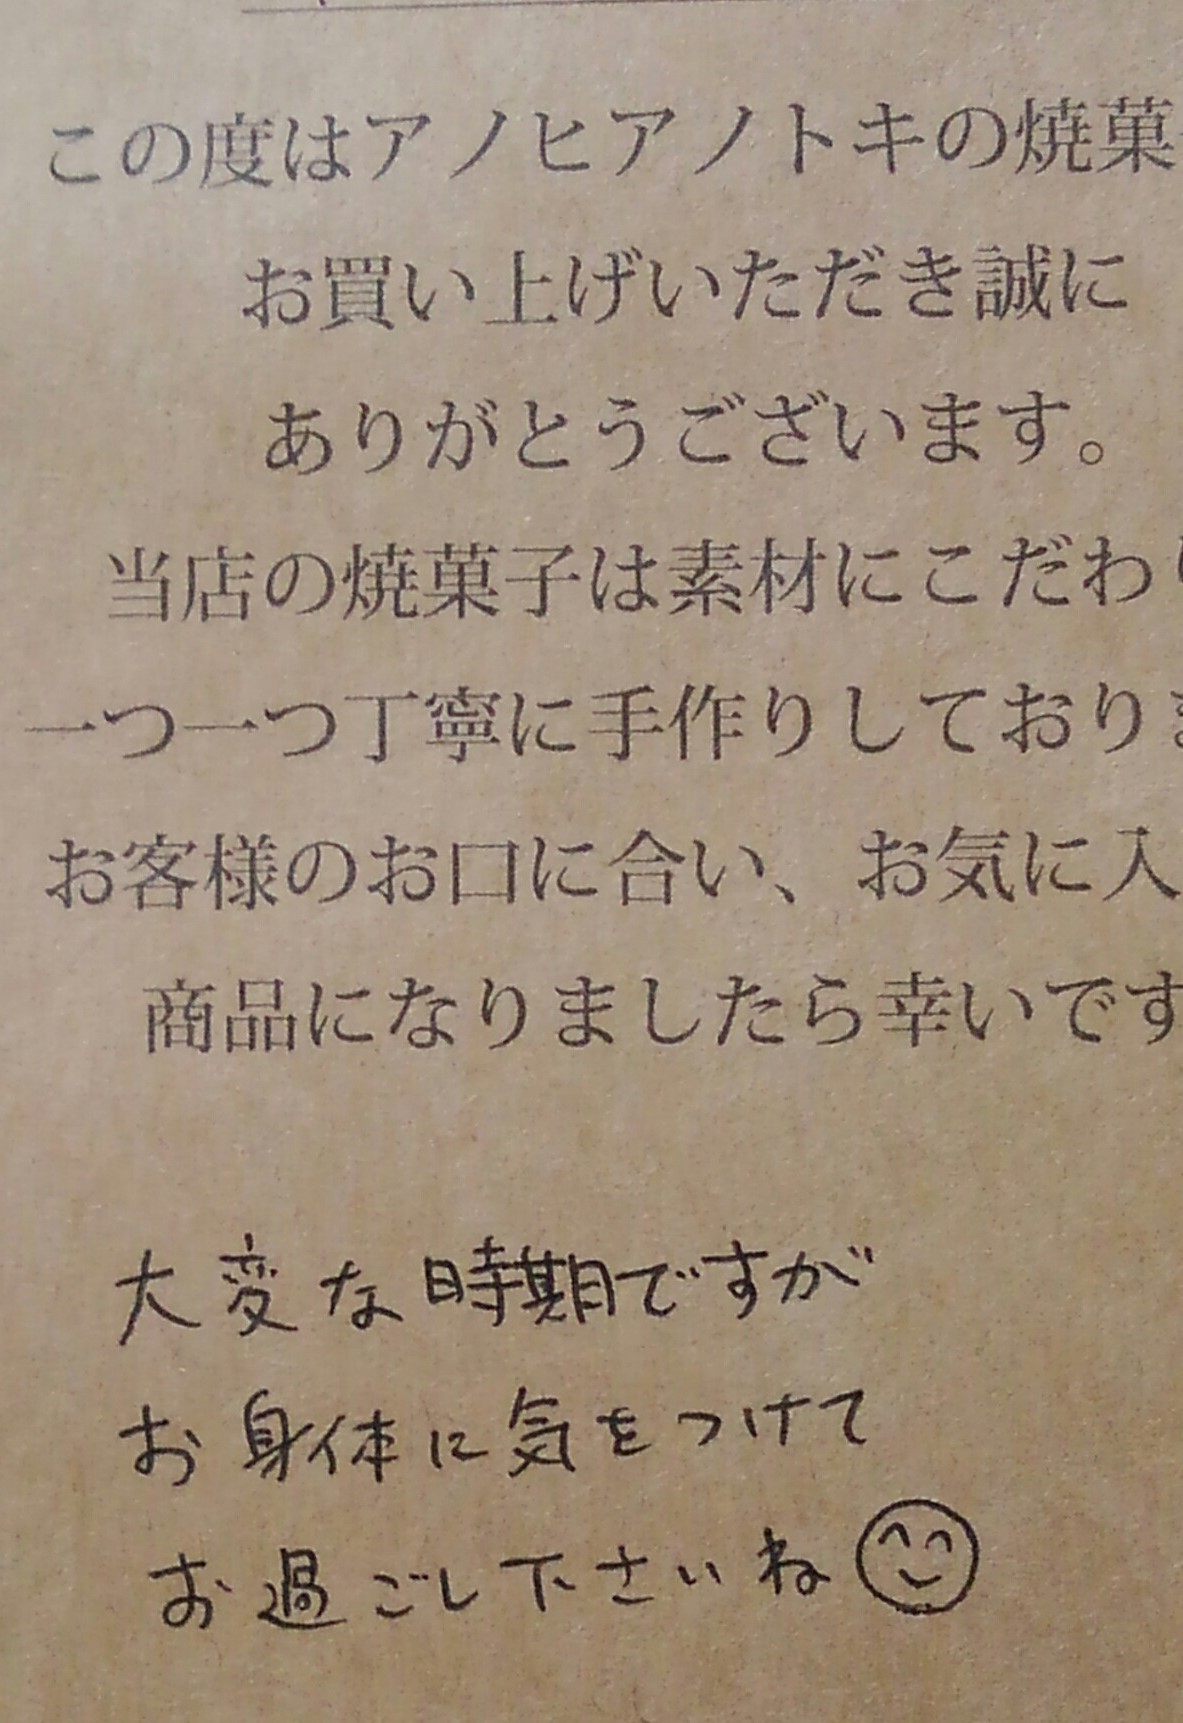 この度はアノヒアノトキの焼菓
お買い上げいただき誠に
ありがとうございます。
当店の焼菓子は素材にこだわり
一つ一つ丁寧に手作りしておりま
お客様のお口に合い、お気に入
商品になりましたら幸いです
大変な時期ですが
お身体に気をつけて
お過ごし下さいね